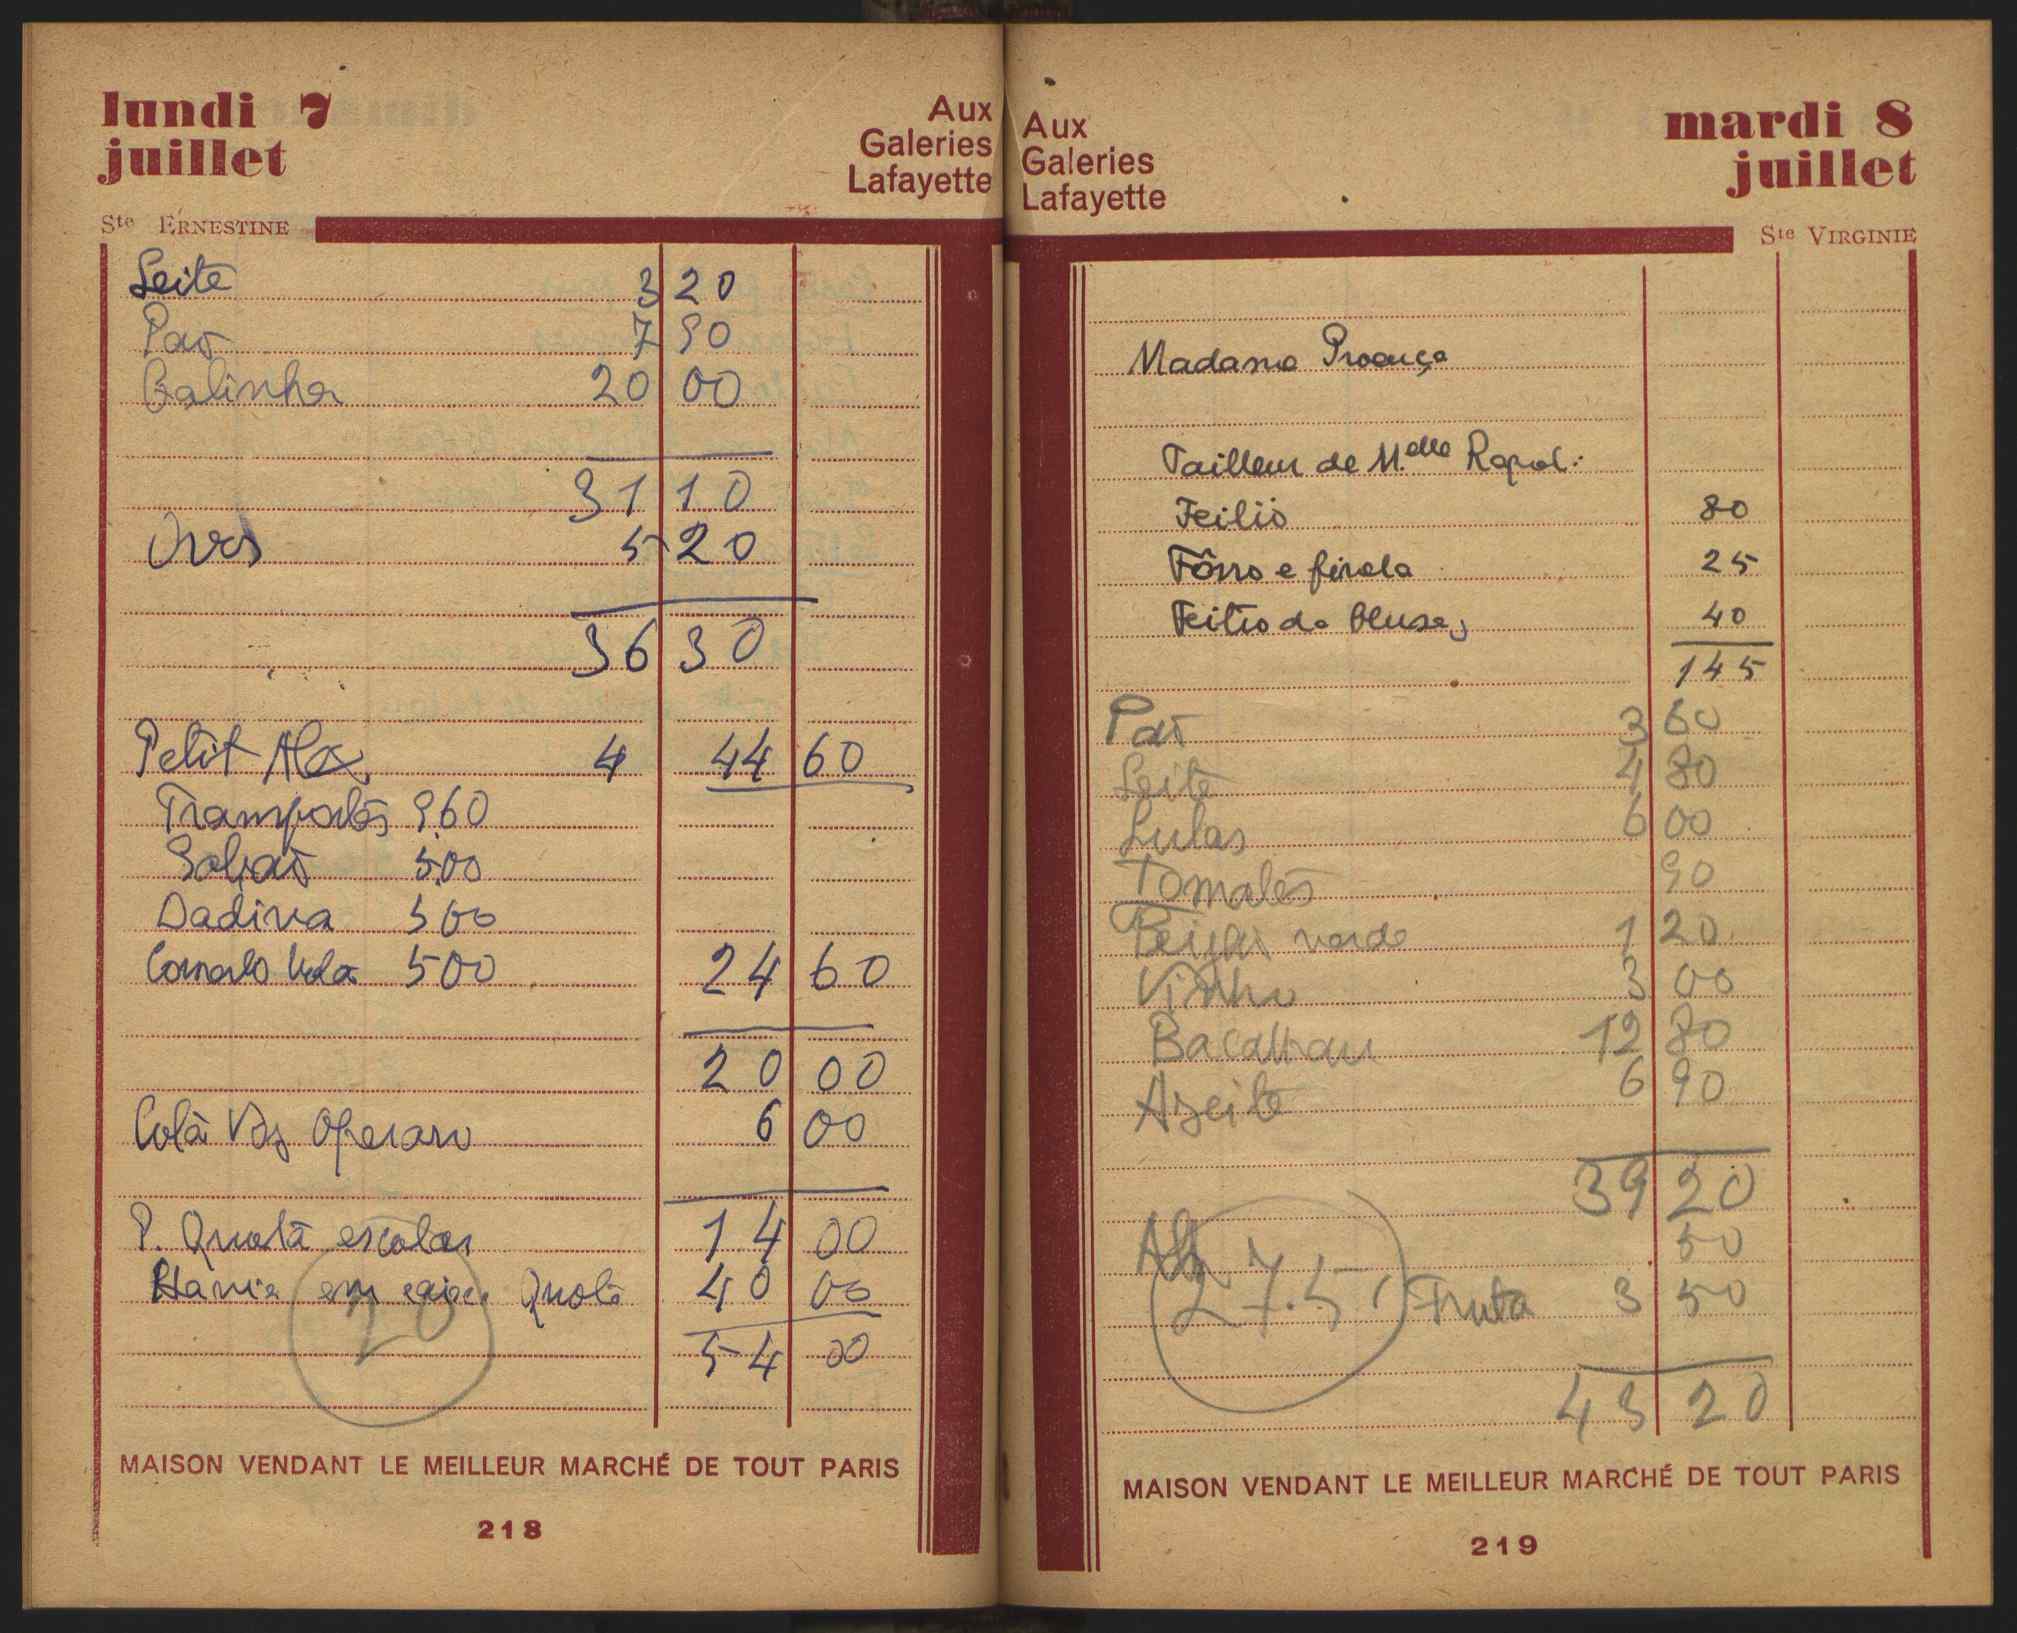 lundi 7
juillet
Aux
Galeries
Lafayette
Ste ERNESTINE
Leite 3 20
Pão 7 90
Galinha 20 00
31 10
Ovos 5 20
36 30
Petit 4 44 60
Transportes 9.60
Sabão 5.00
Dadiva 5 00
500 24 60
20 00
Cota Voz Operario 6 00
14 00
P. Quota escolar
Havia em caixa Quota 40 00
20
54 00
MAISON VENDANT LE MEILLEUR MARCHÉ DE TOUT PARIS
218
Aux
Galeries
Lafayette
mardi 8
juillet
Ste VIRGINIE
Madame Proença
Tailleur de M.elle
Feitio 80
Fôrro e 25
Feitio da blusa 40
145
Pão 3 60
Leite 4 80
Lulas 6 00
Tomates 90
Feijão verde 1 20
Vinho 3 00
Bacalhau 12 80
Azeite 6 90
39 20
50
27.5
Fruta 3 50
43 20
MAISON VENDANT LE MEILLEUR MARCHÉ DE TOUT PARIS
219